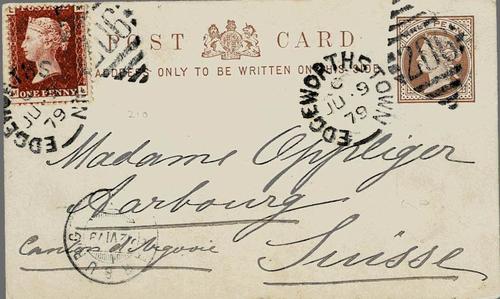 POST CARD
THE ADDRESS ONLY TO BE WRITTEN ON THIS SIDE
ONE PENNY
EDGEWORTHSTOWN
JU 9
79
206
EDGEWORTHSTOWN
JU 9
79
206
210
Madame Oppliger
Aarbourg
Canton d'Argovie
Suisse